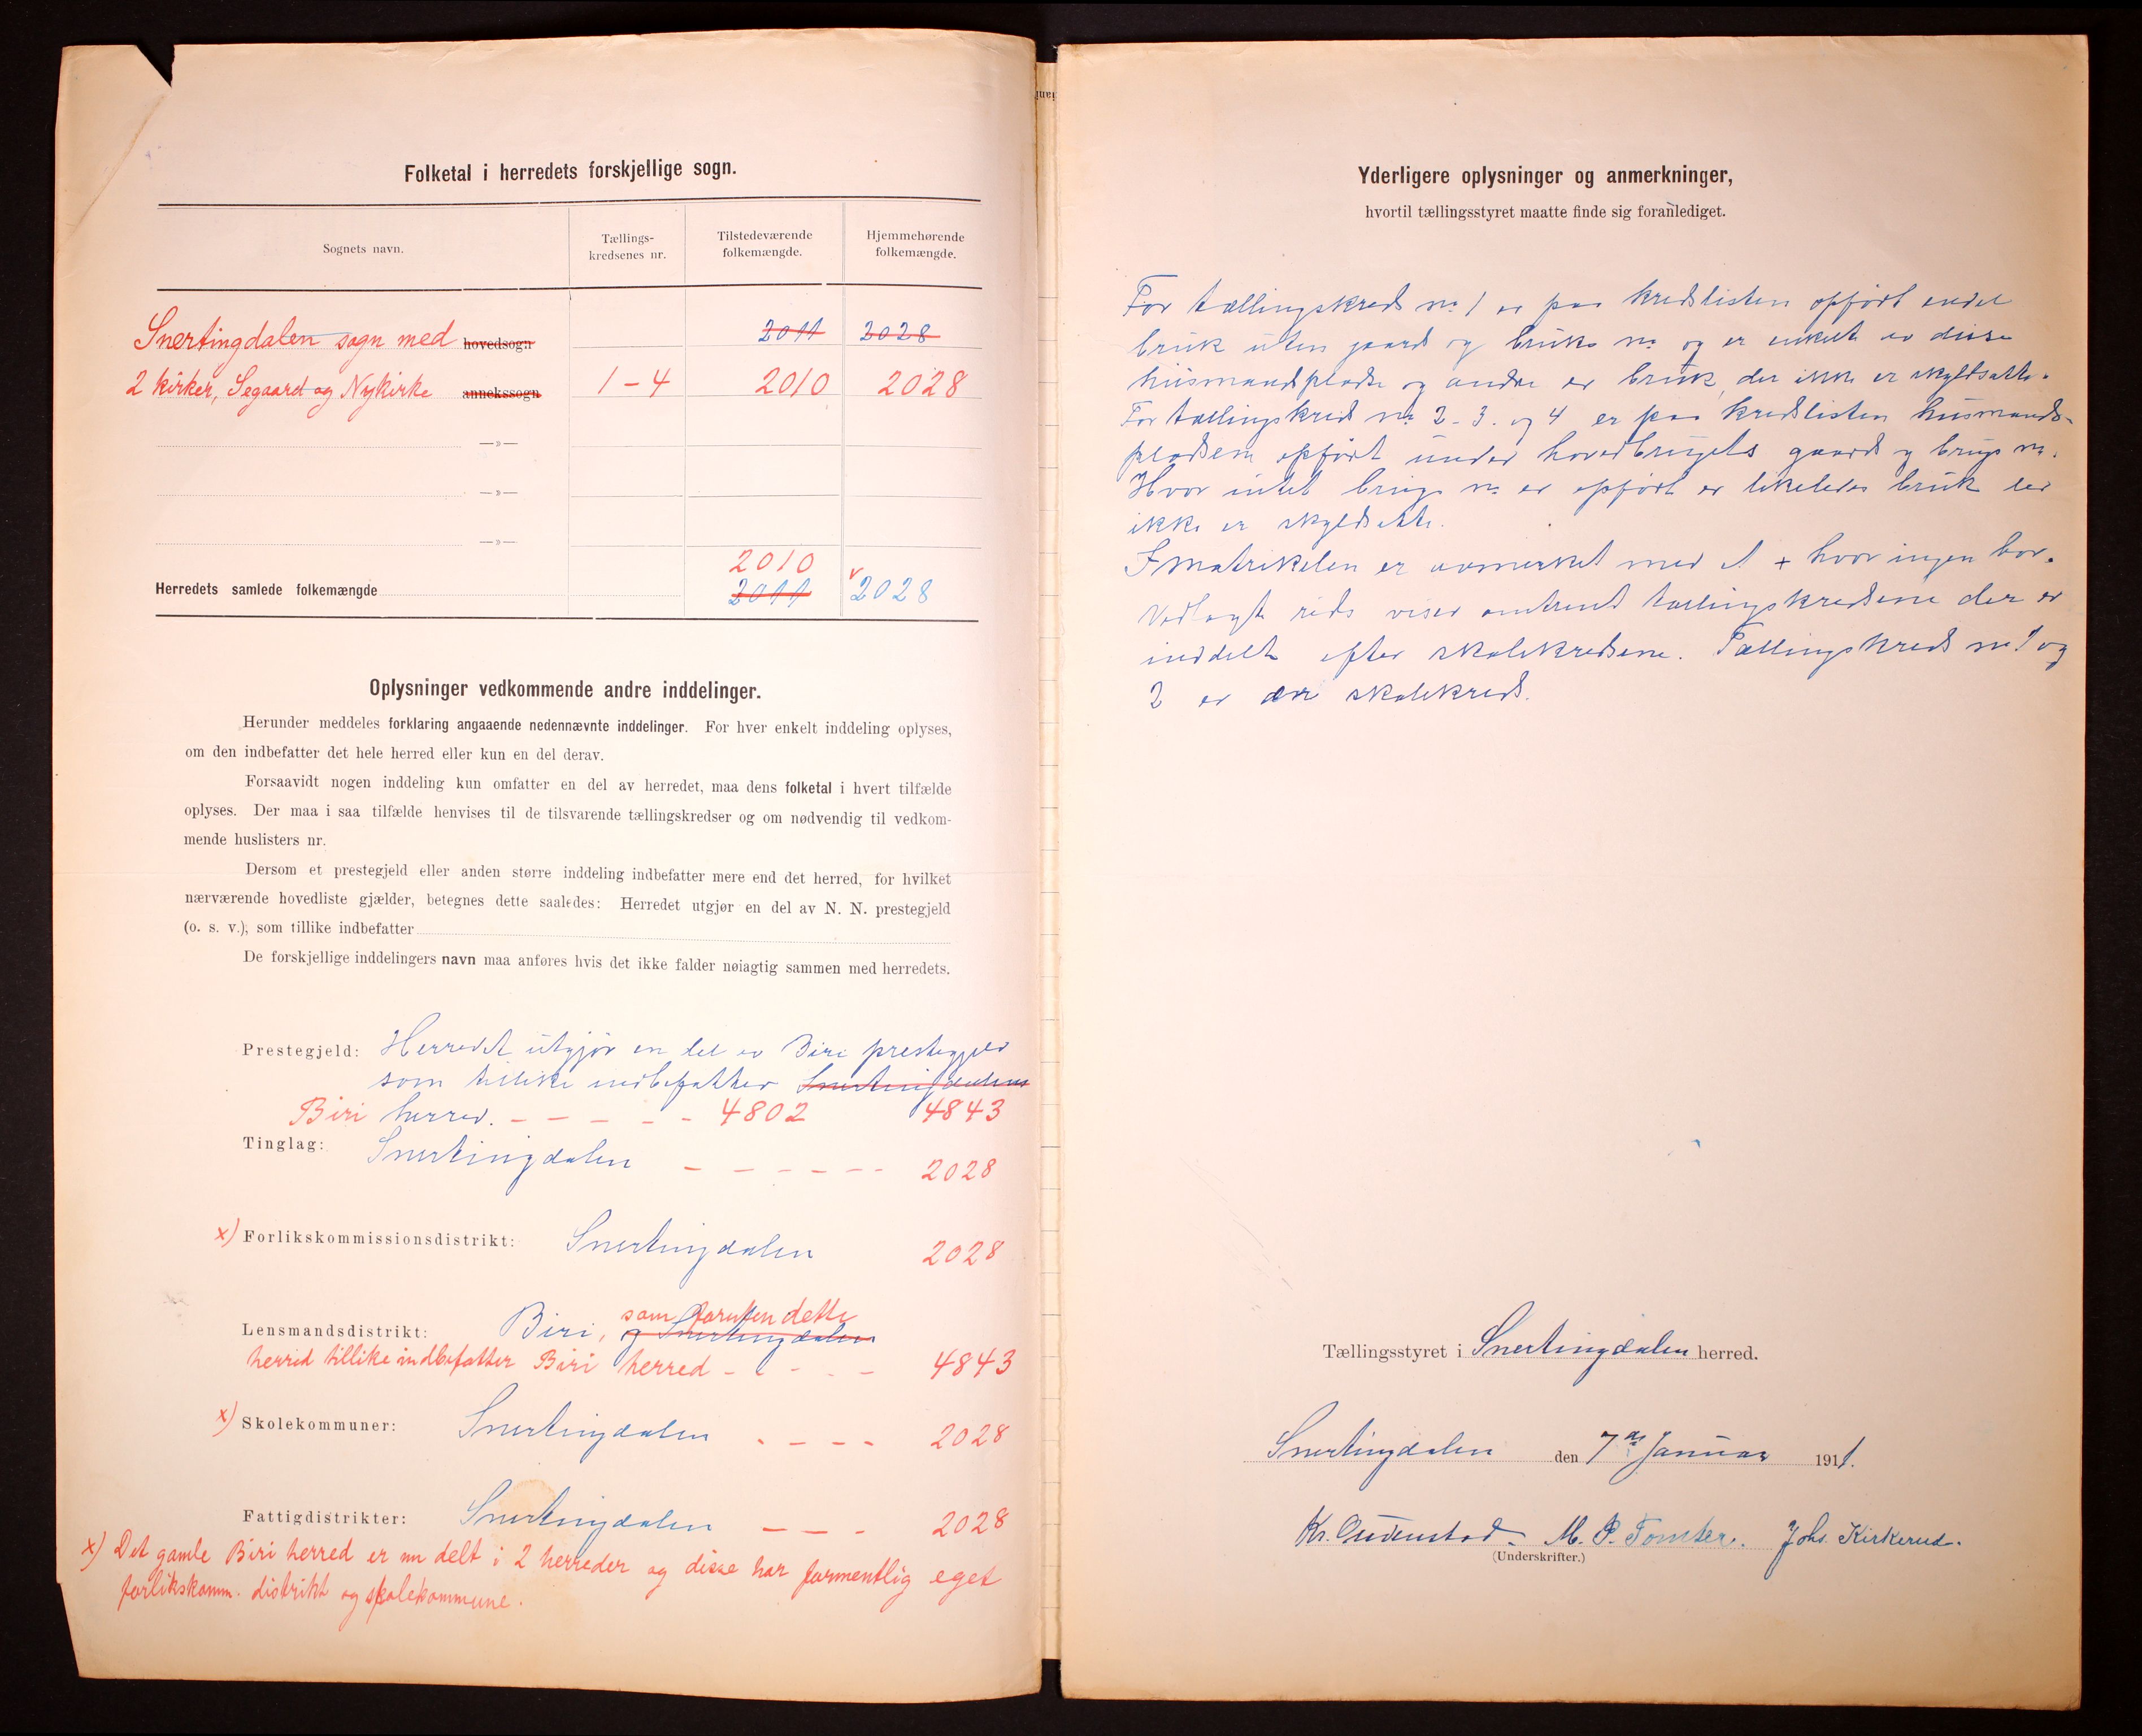 Folketal i herredets forskjellige sogn.
Sognets navn.
Tællings-
kredsenes nr.
Tilstedeværende
folkemængde.
Hjemmehørende
folkemængde.
Snertingdalen sogn med hovedsogn 2011 2028
2 kirker, Segaard og Nykirke annekssogn 1-4 2010 2028
—»—
—»—
—»—
2010
Herredets samlede folkemængde 2011 2028
Oplysninger vedkommende andre inddelinger.
Herunder meddeles forklaring angaaende nedennævnte inddelinger. For hver enkelt inddeling oplyses,
om den indbefatter det hele herred eller kun en del derav.
Forsaavidt nogen inddeling kun omfatter en del av herredet, maa dens folketal i hvert tilfælde
oplyses. Der maa i saa tilfælde henvises til de tilsvarende tællingskredser og om nødvendig til vedkom-
mende huslisters nr.
Dersom et prestegjeld eller anden større inddeling indbefatter mere end det herred, for hvilket
nærværende hovedliste gjælder, betegnes dette saaledes: Herredet utgjør en del av N. N. prestegjeld
(o. s. v.), som tillike indbefatter
De forskjellige inddelingers navn maa anføres hvis det ikke falder nøiagtig sammen med herredets.
Prestegjeld: Herredet utgjør en del av Biri prestegjeld
som tillike indbefatter Snertingdalens
Biri herred. - - - - - 4802 4843
Tinglag: Snertingdalen - - - - - - 2028
x) Forlikskommissionsdistrikt: Snertingdalen 2028
som foruten dette
Lensmandsdistrikt: Biri, og Snertingdalen
herred tillike indbefatter Biri herred - - - - - 4843
x) Skolekommuner: Snertingdalen - - - - 2028
Fattigdistrikter: Snertingdalen - - - 2028
x) Det gamle Biri herred er nu delt i 2 herreder og disse har formentlig eget
forlikskomm. distrikt og skolekommune.
Yderligere oplysninger og anmerkninger,
hvortil tællingsstyret maatte finde sig foranlediget.
For tællingskreds nr 1 er paa kredslisten opført endel
bruk uten gaards og bruks nr og er enkelt av disse
husmandspladse og andre er bruk, der ikke er skyldsatte.
For tællingskreds nr 2-3. og 4 er paa kredslisten husmands-
pladsene opført under hovedbrugets gaards og brugs nr.
Hvor intet brugs nr er opført er likeledes bruk der
ikke er skyldsatte.
I matrikelen er avmerket med et + hvor ingen bor.
Vedlagte rids viser omtrent tællingskredsene der er
inddelt efter skolekredsene. Tællingskreds nr 1 og
2 er en skolekreds.
Tællingsstyret i Snertingdalen herred.
Snertingdalen den 7de Januar 1911.
Kr. Audenstad. M. P. Tomter. Johs. Kirkerud.
(Underskrifter.)